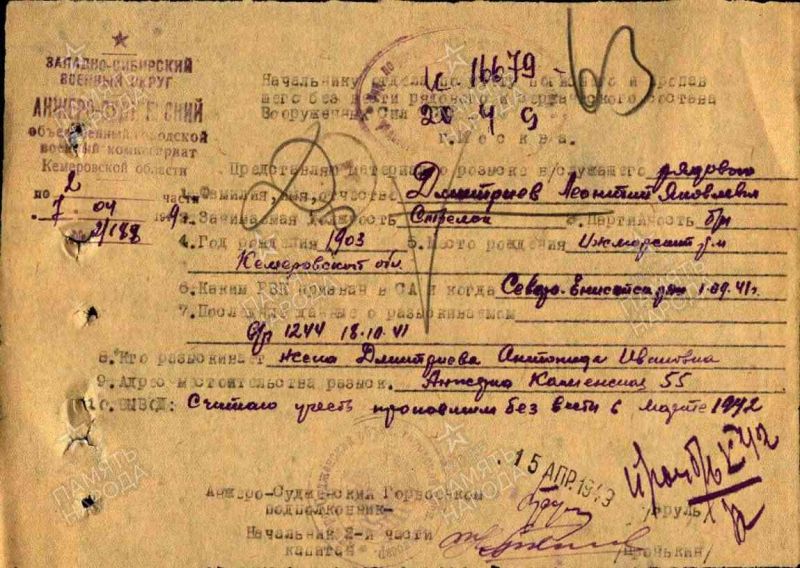 ЗАПАДНО-СИБИРСКИЙ
ВОЕННЫЙ ОКРУГ
АНЖЕРО-СУДЖЕНСКИЙ
объединенный городской
военный комиссариат
Кемеровской области
по 2 части
7 04 1949
2/188
и 16679
20 4 9
Начальнику отдела по учету погибшего и пропав
шего без вести рядового и сержантского состава
Вооруженных Сил
г. Москва.
Представляю материал о розыске в/служащего рядового
1. Фамилия, имя, отчество Дмитриев Леонтий Яковлевич
3. Занимаемая должность Стрелок 2. Партийность б/п
4. Год рождения 1903 5. Место рождения Ижморский р-н
Кемеровской обл.
6. Каким РВК призван в СА и когда Северо-Енисейским 1.09.41г.
7. Последние данные о разыскиваемом
1244 18.10.41
8. Кто разыскивает жена Дмитриева Антонида Ивановна
9. Адрес местожительства разыск. Анжерка Каменская 55
10. ВЫВОД: Считаю учесть пропавшим без вести в марте 1942
15 АПР. 1949
Анжеро-Судженский Горвоенком
подполковник-
Начальник 2-й части
капитан
ПАМЯТЬ НАРОДА